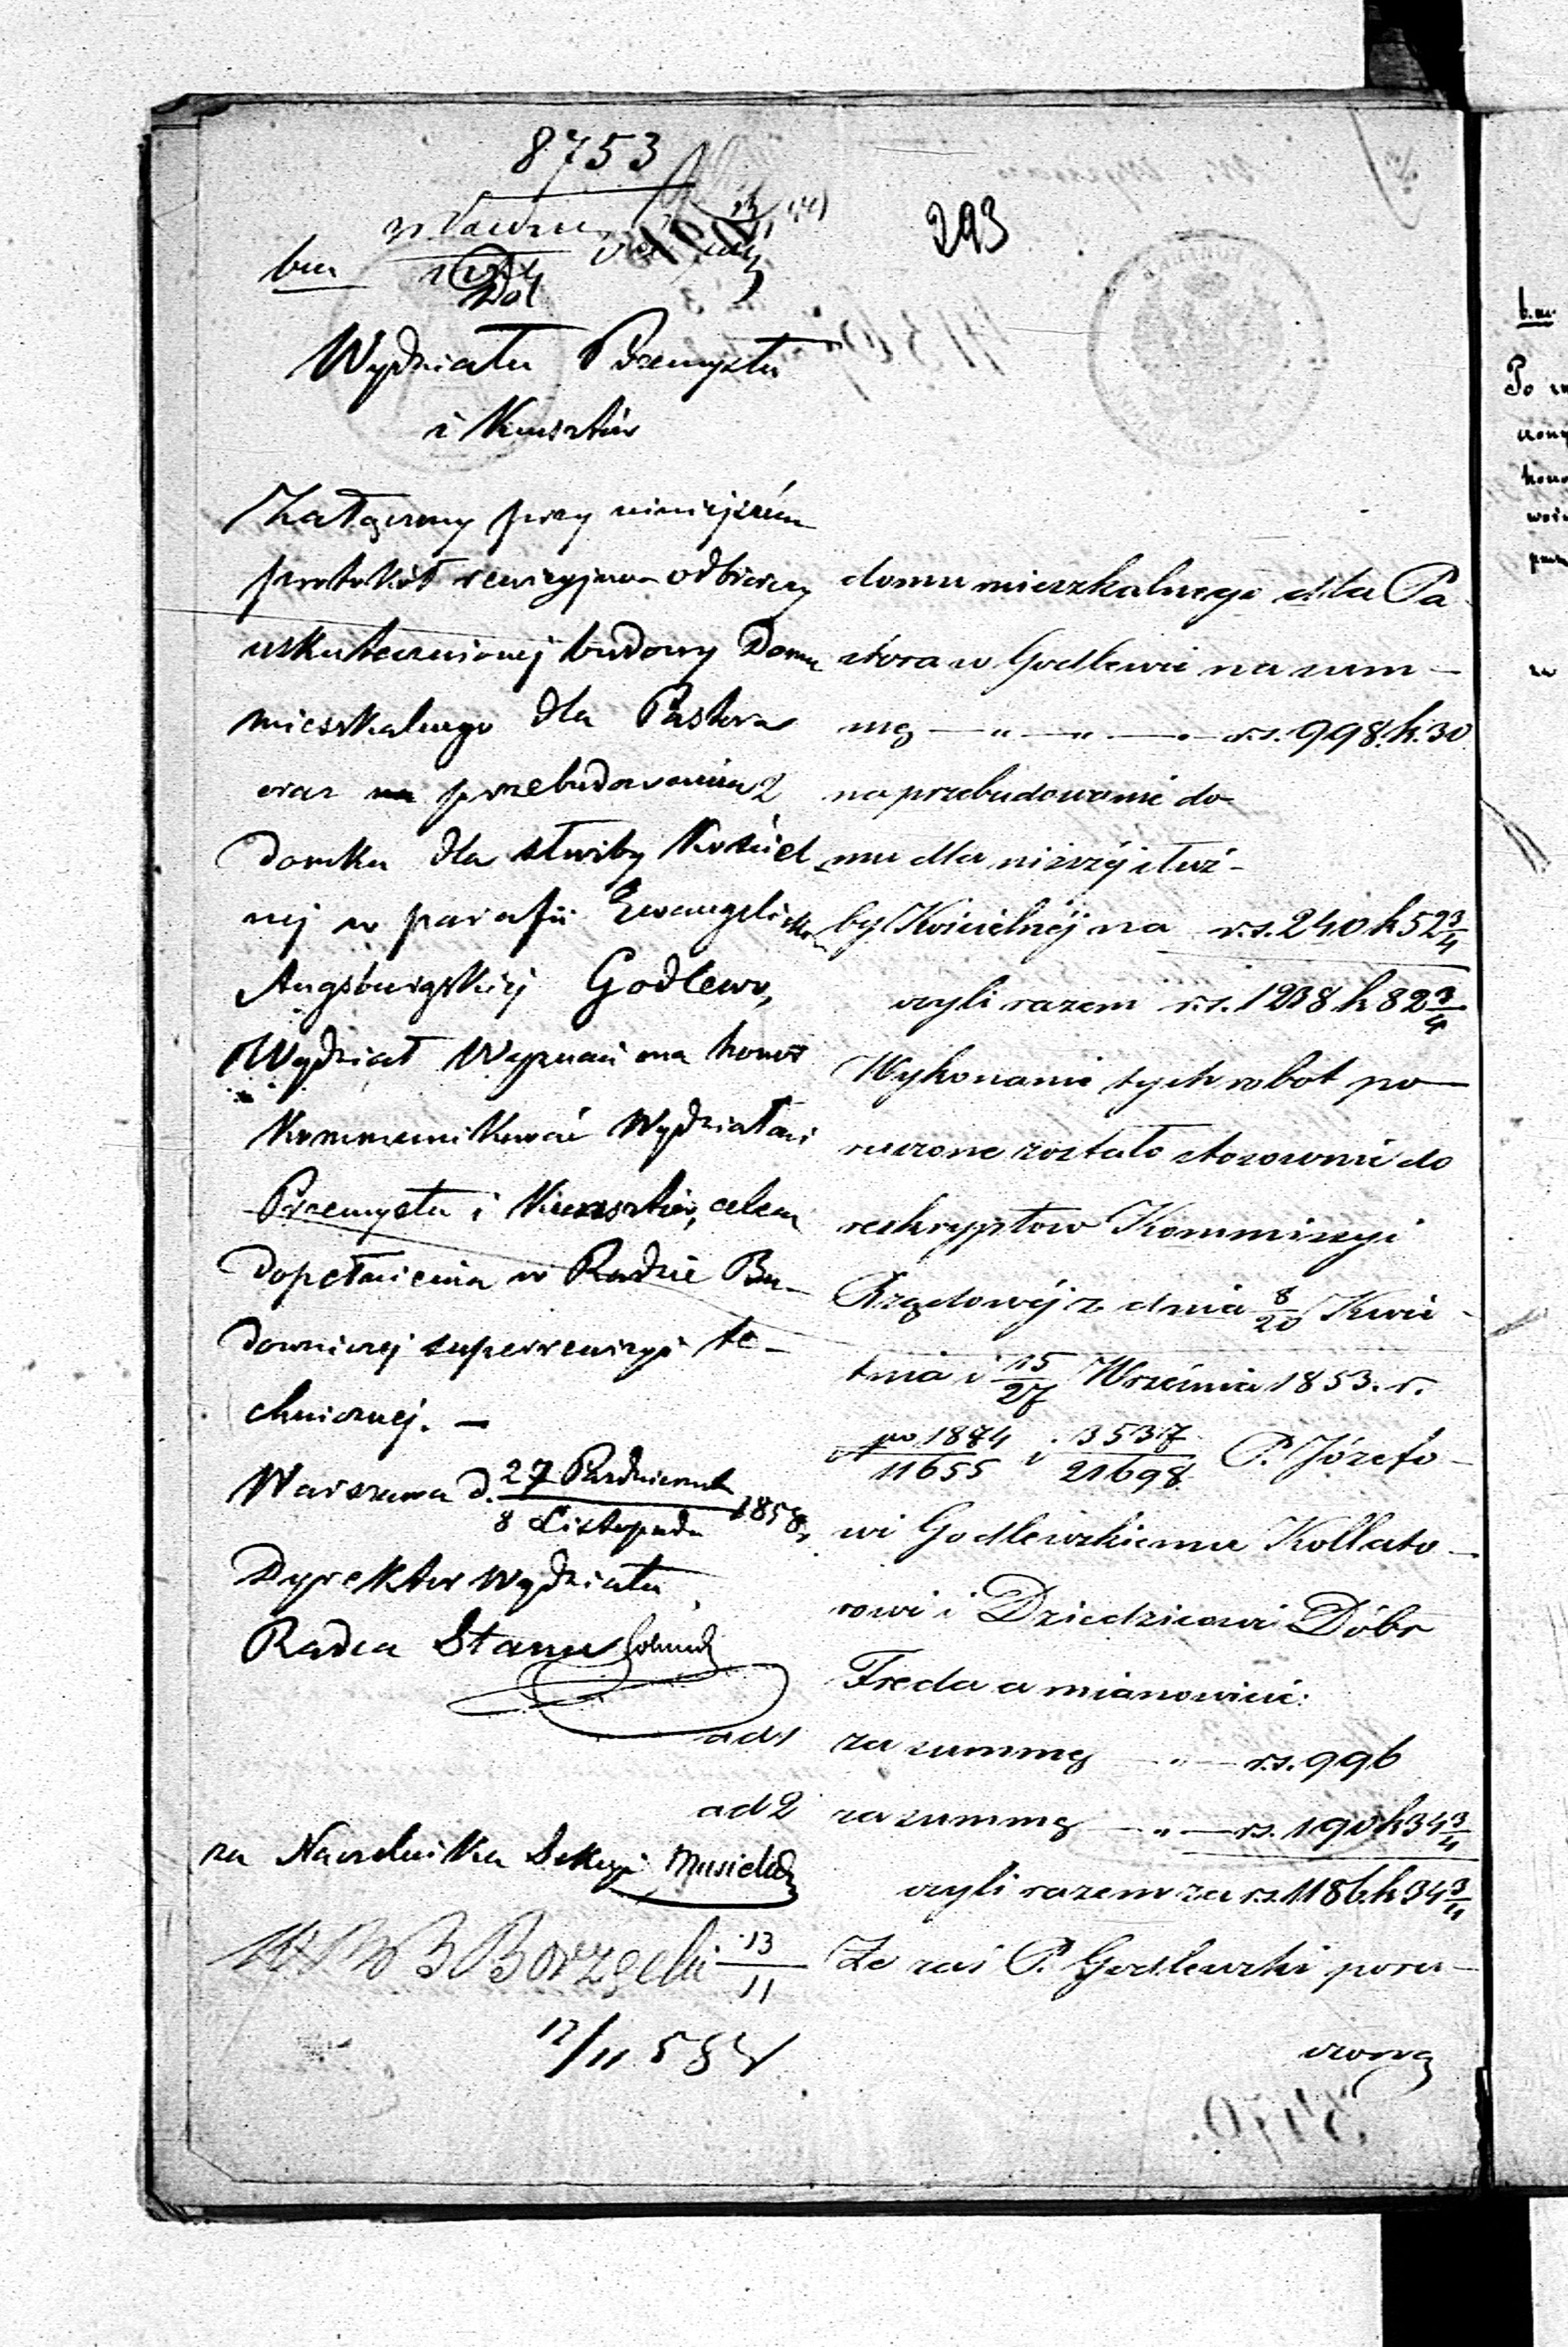 8753
293
bm
Wydziału Przemysłu
i Kunsztów
Załączony przy niniejszém
protokół rewizyjno-odbiorczy
uskutecznionej budowy Domu
mieszkalnego dla Pastora
oraz przebudowania
Domku dla służby Kościel
nej w parafii Ewangelicko
Augsburgskiej Godlewo,
Wydział Wyznań ma honor
Kommunikować Wydziałowi
Przemysłu i Kunsztów, celem
Dopełnienia w Radzie Bu-
downiczej superrewizyi te-
chnicznej. —
Warszawa d. 27 Października / 8 Listopada 1858
Dyrektor Wydziału
Radca Stanu
za Naczelnika Sekcyi
Borzęcki 13/11
12/11 58
domu mieszkalnego dla Pa-
stora w Godlewie na sum-
mę — " — " — rs. 998. k. 30
2 na przebudowanie do-
mu dla niższéj służ-
by Kościelnéj na rs. 240 k 52 3/4
czyli razem rs. 1238 k 82 3/4
Wykonanie tych robot po-
ruczone zostało stosownie do
reskryptow Kommissyi
Rządowéj z dnia 8/20 Kwie-
tnia i 15/27 Września 1853. r.
1874/11655 i 3537/21698 P. Józefo-
wi Godlewskiemu Kollato-
rowi i Dziedzicowi Dóbr
Freda a mianowicie:
ad 1 za summę — " — rs. 996
ad 2 za summę — " — rs. 190 k 34 3/4
czyli razem za rs. 1186 k 34 3/4
Że zaś P. Godlewski poru-
czoną